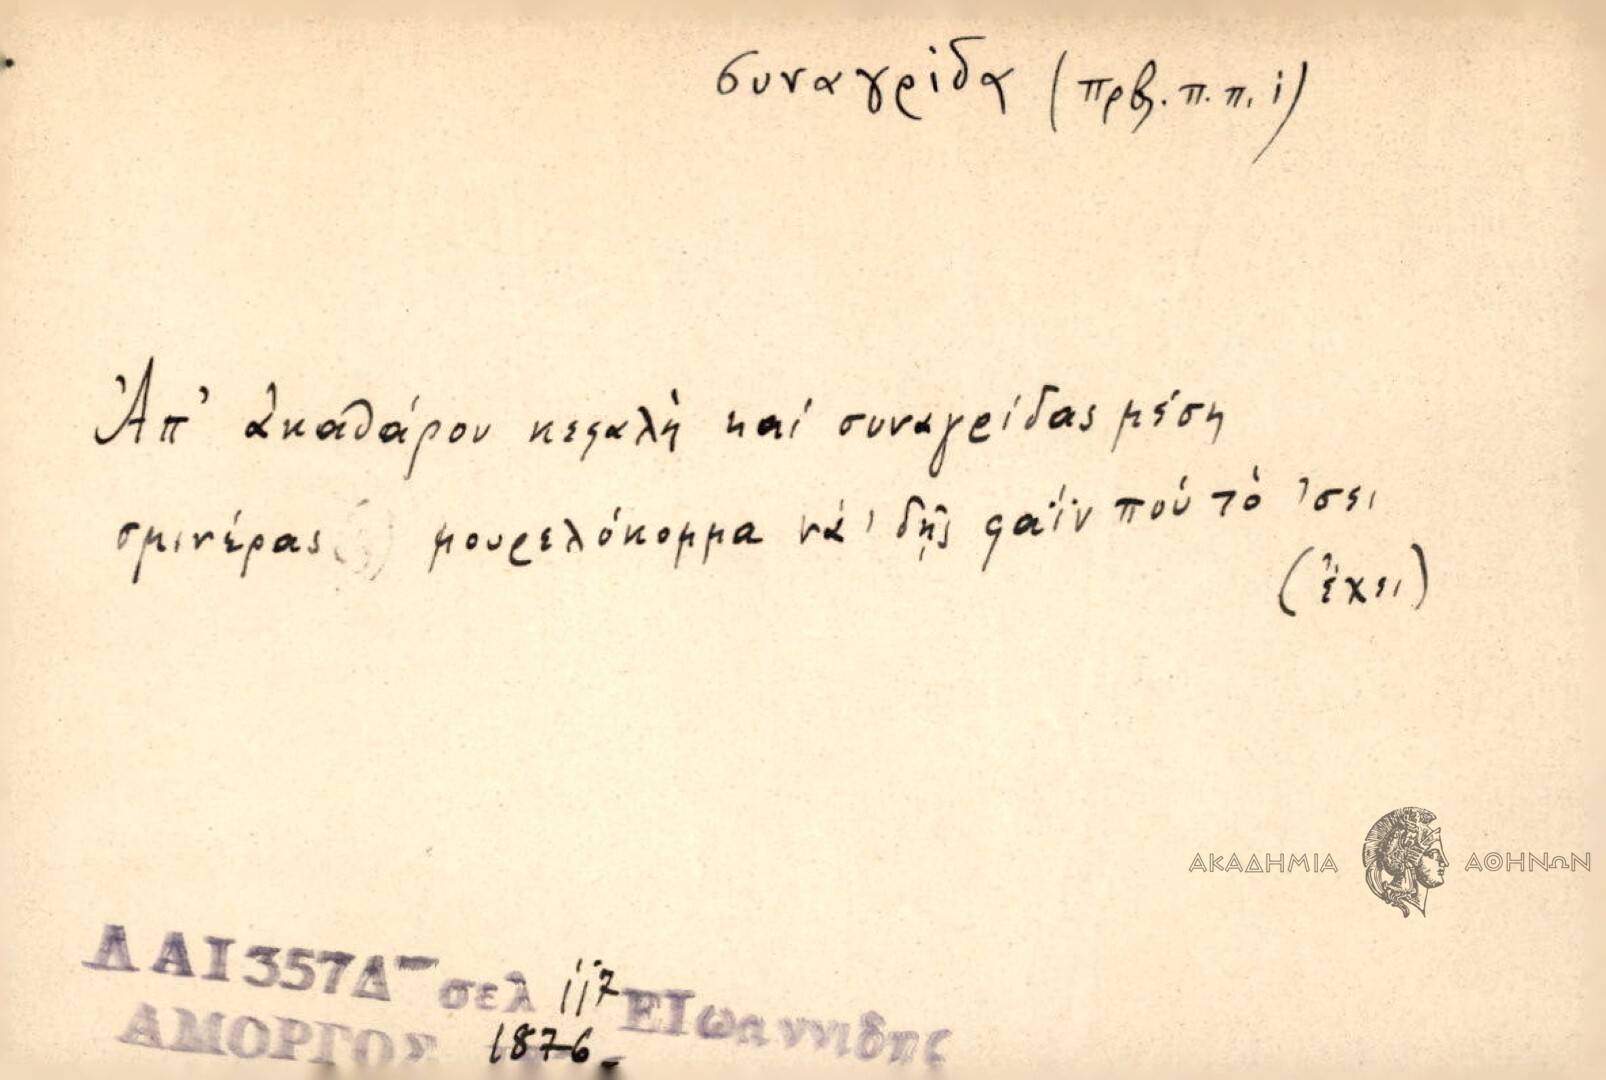 συναγρίδα (πρβ. π. π. i)
Ἀπ' ἀκαθάρου κεφαλὴ καί συναγρίδας μέση
σμινέρας μουρελόκομμα νά 'δῇς φαΐν πού τὸ 'σει
(ἔχει)
ΑΚΑΔΗΜΙΑ ΑΘΗΝΩΝ
ΛΑΙ357Δ σελ 117 ΕΙωαννιδης
ΑΜΟΡΓΟΣ 1876